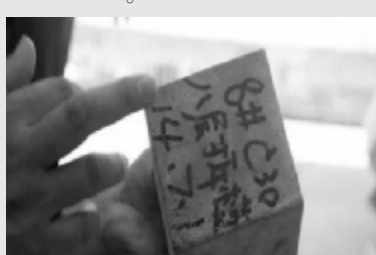 8# C30
八层顶板
14.7.1